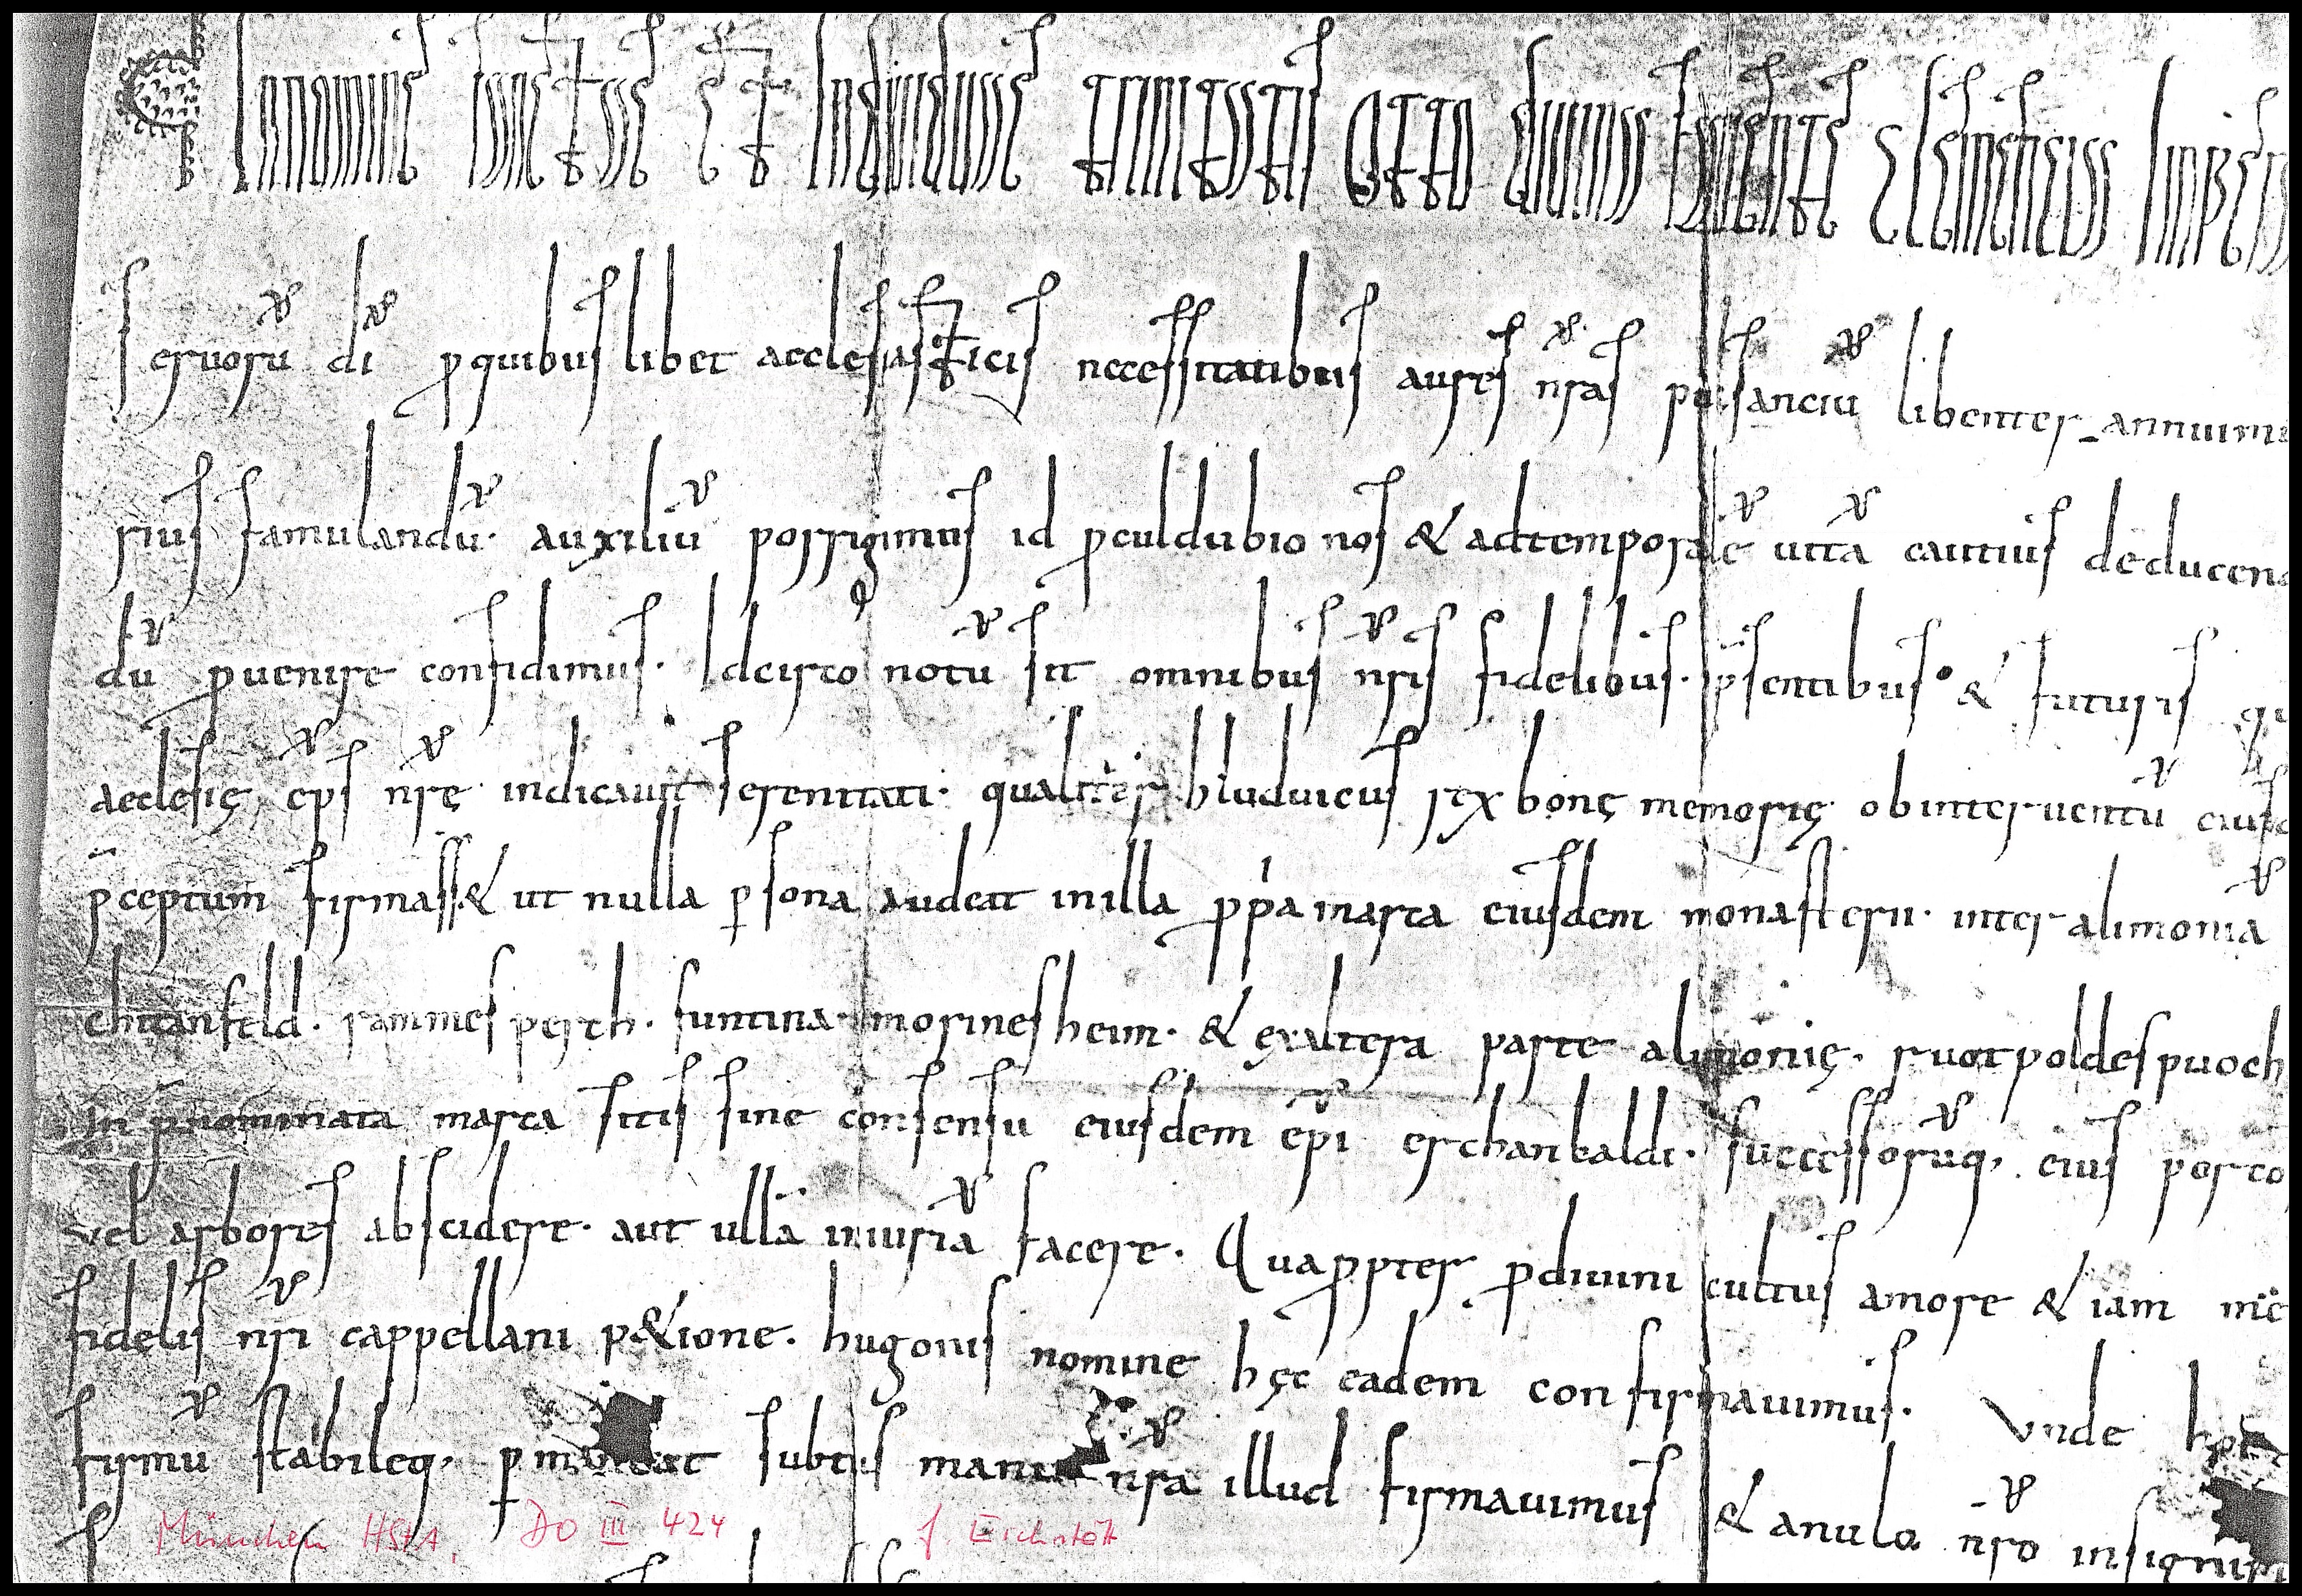 In nomine sanctae et indiuiduae trinitatis Otto diuina fauente clementia Imper
seruorū dī p quibuslibet aecclesiasticis necessitatibus aures nr̄as pulsanciū libenter annuim
rius famulandū auxiliū porrigimus id pculdubio nos & ad temporalē uitā cautius deducen
dū puenire confidimus. Idcirco notū sit omnibus nr̄is fidelibus. p̄sentibus & futuris
aeclesię ep̄s nr̄ę indicauit serenitati. qualiter hludvicus rex bonę memorię ob interuentū
p̄ceptum firmass& ut nulla psona audeat in illa pp̄a marca eiusdem monasterii. inter alimoniā
chitanfeld. rammesperch. suntina. morinesheim. & ex altera parte alimonię. ruotpoldespuoch
in p̄nominata marca sitis sine consensu eiusdem ep̄i erchanbaldi. successorūq, eius porco
vel arbores abscidere. aut ullā iniuriā facere. Quappter p diuini cultus amore & iam
fidelis nr̄i cappellani p&ione. hugonis nomine hęc eadem confirmauimus. Vnde
firmū stabileq, pmaneat subtus manu nr̄a illud firmauimus & anulo nr̄o
München HStA, DO III 424 f. Eichstätt